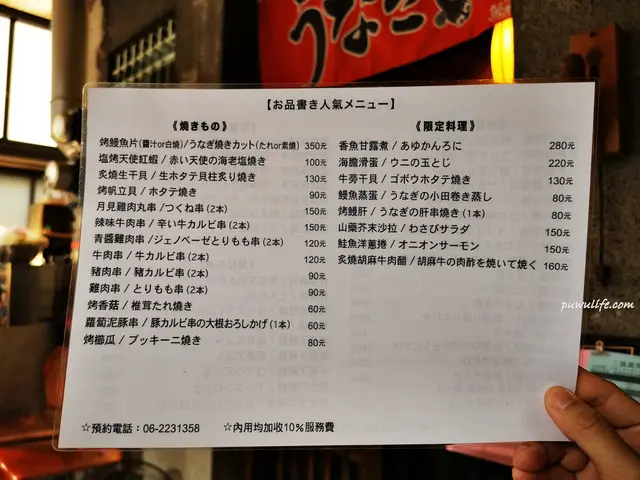 うなぎ
【お品書き人氣メニュー】
《燒きもの》
烤鰻魚片(醬汁or白燒)/うなぎ燒きカット(たれor素燒) 350元
塩烤天使紅蝦 / 赤い天使の海老塩燒き 100元
炙燒生干貝 / 生ホタテ貝柱炙り燒き 130元
烤帆立貝 / ホタテ燒き 90元
月見雞肉丸串 / つくね串 (2本) 150元
辣味牛肉串 / 辛い牛カルビ串 (2本) 150元
青醬雞肉串 / ジェノベーゼとりもも串 (2本) 120元
牛肉串 / 牛カルビ串 (2本) 120元
豬肉串 / 豚カルビ串 (2本) 90元
雞肉串 / とりもも串 (2本) 90元
烤香菇 / 椎茸たれ燒き 60元
蘿蔔泥豚串 / 豚カルビ串の大根おろしかけ (1本) 60元
烤櫛瓜 / ブッキーニ燒き 80元
《限定料理》
香魚甘露煮 / あゆかんろに 280元
海膽滑蛋 / ウニの玉とじ 220元
牛蒡干貝 / ゴボウホタテ燒き 130元
鰻魚蒸蛋 / うなぎの小田卷き蒸し 80元
烤鰻肝 / うなぎの肝串燒き (1本) 80元
山藥芥末沙拉 / わさびサラダ 150元
鮭魚洋蔥捲 / オニオンサーモン 150元
炙燒胡麻牛肉醋 / 胡麻牛の肉酢を燒いて燒く 160元
☆預約電話：06-2231358 ☆內用均加收10%服務費
puwullfe.com